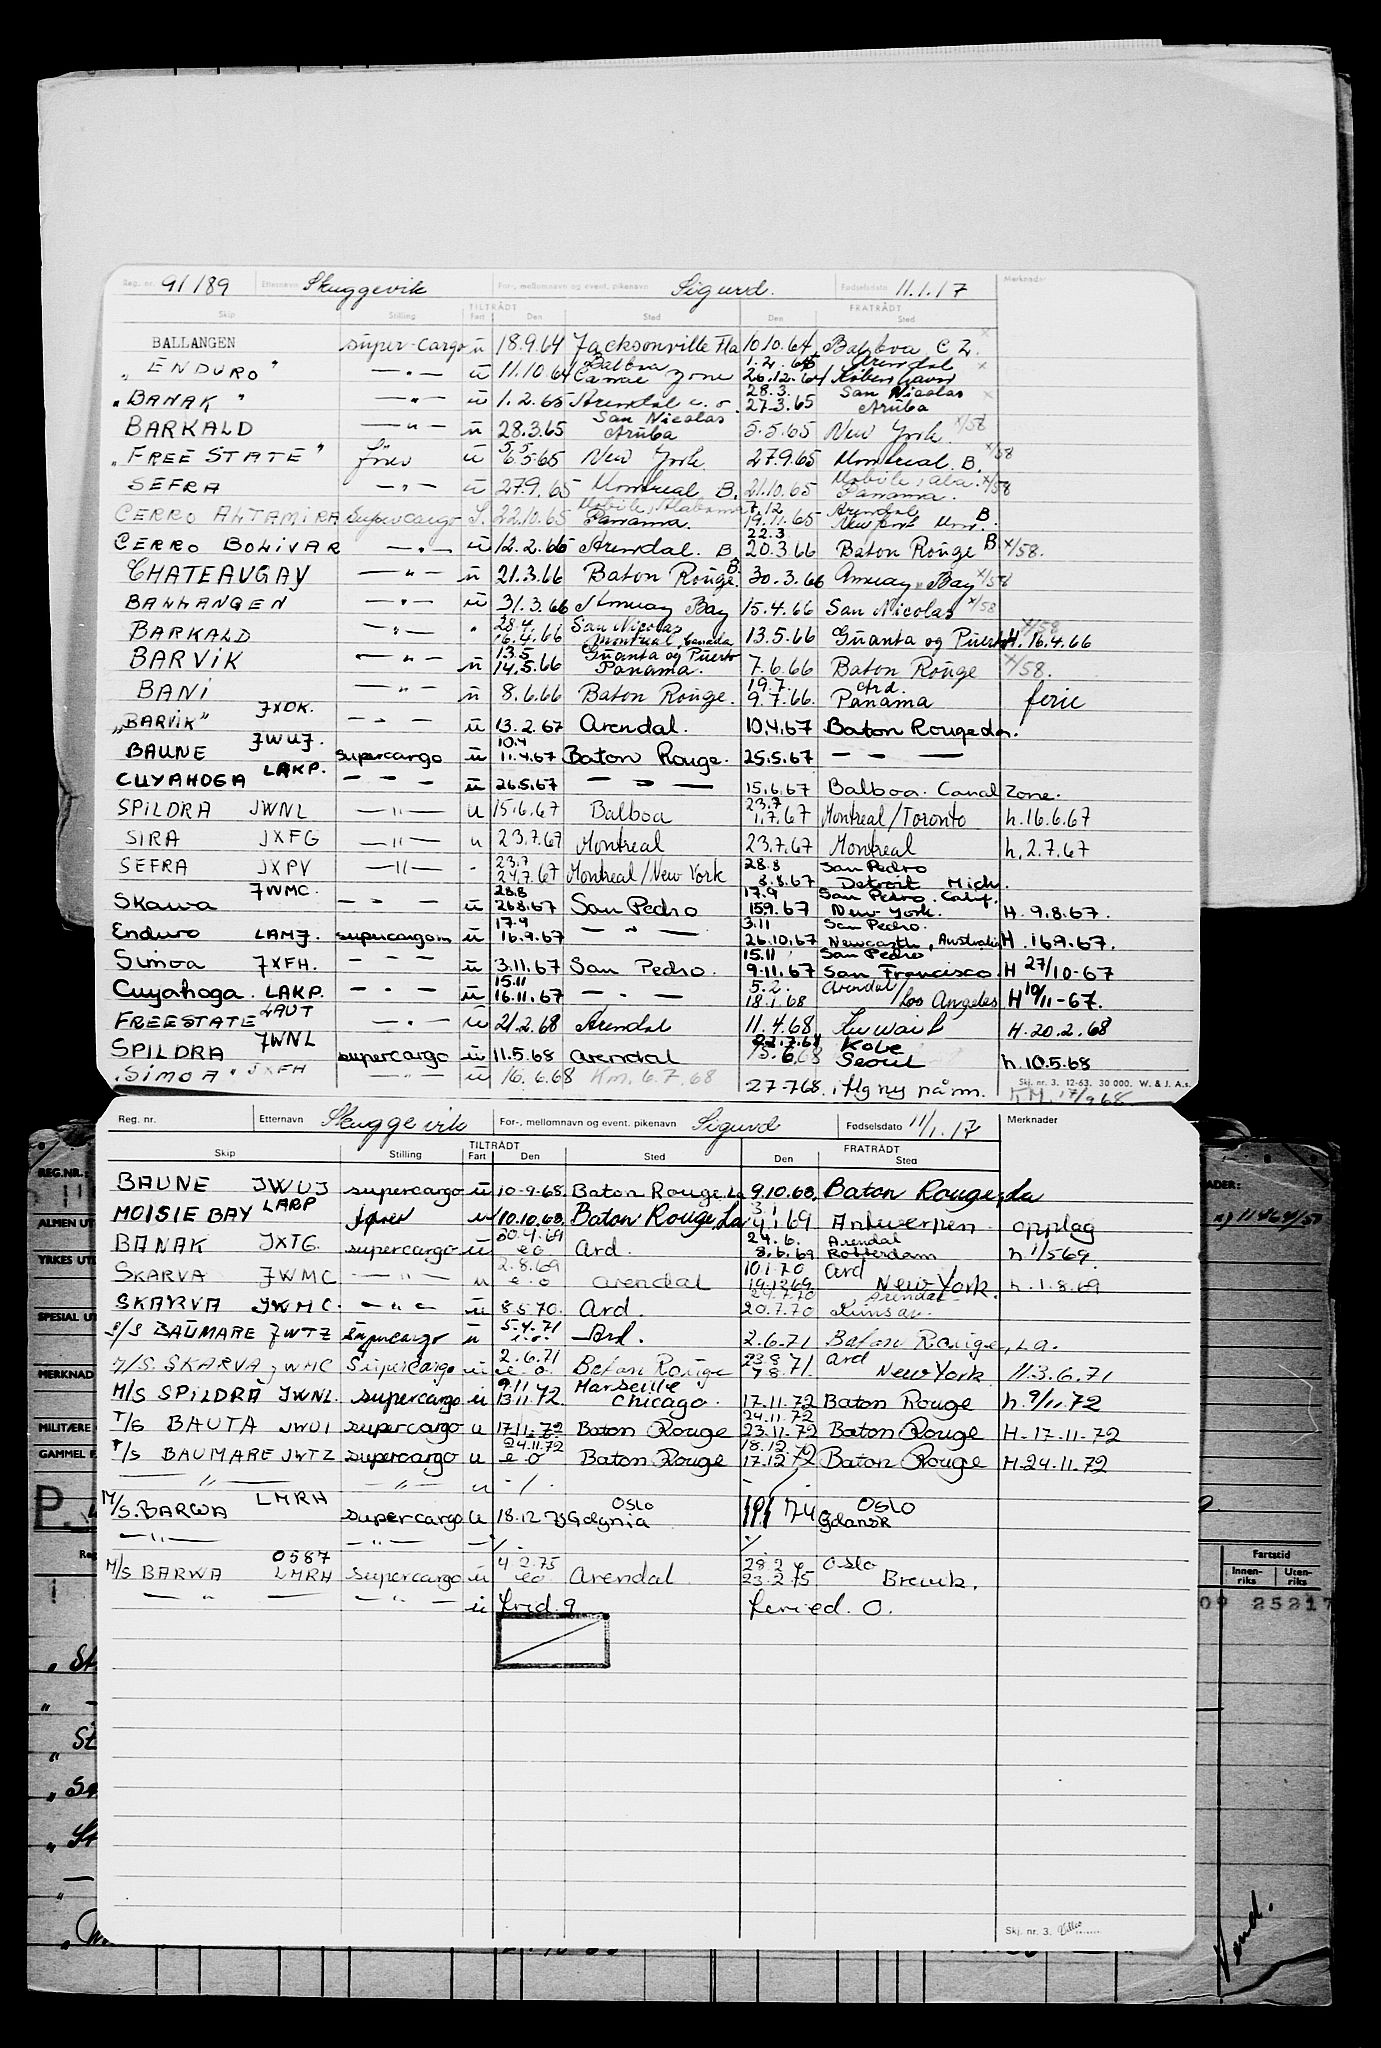 Reg. nr. 91189 Etternavn Skuggevik For-, mellomnavn og event. pikenavn Sigurd. Fødselsdato 11.1.17 Merknader
TILTRÅDT FRATRÅDT
Skip Stilling Fart Den Sted Den Sted
BALLANGEN super-cargo ü 18.9.64 Jacksonville Fla 10.10.64 Balboa C Z.
Balboa 1.2.65 Arendal
"ENDURO" — " — ü 11.10.64 zone 26.12.64 København
28.3. San Nicolas
"BANAK" — " — ü 1.2.65 Arendal e. o. 27.3.65 Aruba
San Nicolas
BARKALD — " — ü 28.3.65 Aruba 5.5.65 New York x/58
"FREE STATE" fører ü 6.5.65 New York 27.9.65 Montreal B. x/58
Mobile, Ala. x/58
SEFRA — " — ü 27.9.65 Montreal B. 21.10.65 Panama.
Mobile, Alabama 7.12 Arendal
CERRO ALTAMIRA supercargo 22.10.65 Panama. 19.11.65 B.
22.3
CERRO BOLIVAR — " — ü 12.2.66 Arendal. B 20.3.66 Baton Rouge B x/58.
CHATEAUGAY — " — ü 21.3.66 Baton Rouge B. 30.3.66 Amuay Bay x/58
BALLANGEN — " — ü 31.3.66 Amuay Bay 15.4.66 San Nicolas x/58
28.4 San Nicolas x/58
BARKALD — " — " 16.4.66 Montreal, Canada 13.5.66 Guanta og Puerto H. 16.4.66
13.5 Guanta og Puerto
BARVIK — " — ü 14.5.66 Panama. 7.6.66 Baton Rouge x/58.
19.7. Ard.
BANI — " — ü 8.6.66 Baton Rouge. 9.7.66. Panama ferie
"BARVIK" JXDK. — " — ü 13.2.67 Arendal. 10.4.67 Baton Rouge La.
10.4
BAUNE JWUJ. supercargo ü 11.4.67 Baton Rouge. 25.5.67 — — —
CUYAHOGA LAKP. — " — ü 26.5.67 — " — 15.6.67 Balboa. Canal Zone.
23.7
SPILDRA JWNL — " — u 15.6.67 Balboa 1.7.67 Montreal/Toronto h. 16.6.67
SIRA JXFG — " — u 23.7.67 Montreal 23.7.67 Montreal h. 2.7.67
23.7 28.8 San Pedro
SEFRA JXPV — " — " 24.7.67 Montreal/New York 8.8.67 Detroit Mich.
28.8 17.9 San Pedro. Calif.
Skawa JWMC. — " — ü 26.8.67 San Pedro 15.9.67 New York. H. 9.8.67.
17.9 3.11 San Pedro.
Enduro LAMJ. supercargo ü 16.9.67 — " — 26.10.67 Newcastle, Australia H. 16.9.67.
15.11 San Pedro
Simoa JXFH. — " — ü 3.11.67 San Pedro. 9.11.67 San Francisco H 27/10-67
15.11 5.2. Arendal/
Cuyahoga. LAKP. — " — ü 16.11.67 — " — 18.1.68 Los Angeles H 10/11-67.
FREESTATE LAUT — " — ü 21.2.68 Arendal 11.4.68 Kuwait H. 20.2.68
Kobe
SPILDRA JWNL supercargo ü 11.5.68 Arendal 15.6.68 Seoul h. 10.5.68
"SIMOA" JXFH — " — ü 16.6.68 Km. 6.7.68 27-768. i flg ny påm. KM. 17/9 68.
Skj. nr. 3. 12-63. 30 000. W. & J. A.s.
Reg. nr. Etternavn Skuggevik For-, mellomnavn og event. pikenavn Sigurd Fødselsdato 11/1.17 Merknader
TILTRÅDT FRATRÅDT
Skip Stilling Fart Den Sted Den Sted
BAUNE JWUJ supercargo ü 10-9-68. Baton Rouge, La 9.10.68. Baton Rouge, La
3.1
MOISIE BAY LARP fører u 10.10.68. Baton Rouge, La 4.1.69 Antwerpen opplag
30.4.69 24.6. Arendal
BANAK JXTG. supercargo ü e o Ard. 8.6.69 Rotterdam h. 1/5 69.
2.8.69 10.1.70 ard
SKARVA JWMC — " — u e. o Arendal 19.12.69 New York. h. 1.8.69
24.7.70 Arendal
SKARVA JWMC. — " — ü 8.5.70. Ard. 20.7.70
5.4.71
S/S BAUMARE JWTZ supercargo ü e.o. Ard. 2.6.71 Baton Rouge, La.
2.6.71 23.8 ard
M/S. SKARVA JWMC Supercargo ü e o. Baton Rouge 7.8.71 New York 11.3.6.71
9.11 Marseille
M/S SPILDRA JWNL. supercargo ü 13.11.72. Chicago. 17.11.72 Baton Rouge h. 9/11.72
24.11.72
T/S BAUTA JWUI supercargo u 17.11.72 Baton Rouge 23.11.72 Baton Rouge H-17-11-72
24.11.72 18.12.
T/S BAUMARE JWTZ supercargo u e o Baton Rouge 17.12.72 Baton Rouge H-24.11.72
— " — — " — u - / - - / -
Oslo Oslo
M/S. BARWA LMRH supercargo u 18.12.73 Gdynia 74 Gdansk
— " — — " — — - / . - / .
0587 4 2.75 28.2 Oslo
M/S BARWA LMRH supercargo ü eo Arendal 23.2.75 Brevik.
— " — — " — ü
Skj. nr. 3.
REG.NR.:
ALMEN UT
YRKES UT
SPESIAL UT
MERKNAD
MILITÆRE
GAMMEL F.
P.
Fartstid
Innen-riks Uten-riks
09 25217
Vend.